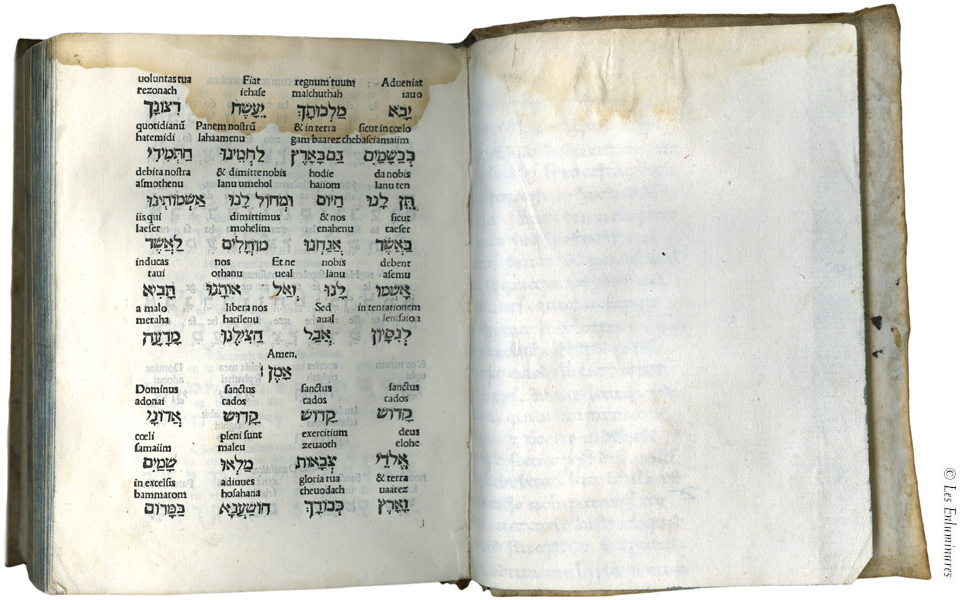 uoluntas tua Fiat regnum tuum Adueniat
rezonach iehase malchuthah iauo
יָבֹא מַלְכוּתָךְ יֵעָשֶׂה רְצוֹנָךְ
quotidianū Panem nostrū & in terra sicut in cœlo
hatemidi lahaamenu gam baarez chebasciamaiim
כְּבַשָּׁמַיִם גַם בָּאָרֶץ לַחְמֵינוּ הַתְּמִידִי
debita nostra & dimitte nobis hodie da nobis
asmothenu lanu umehol haiom lanu ten
תֵּן לָנוּ הַיּוֹם וּמְחוֹל לָנוּ אַשְׁמוֹתֵינוּ
iis qui dimittimus & nos sicut
laeser mohelim enahenu caeser
כַּאֲשֶׁר אֲנַחְנוּ מוֹחֲלִים לַאֲשֶׁר
inducas nos Et ne nobis debent
taui othanu ueal lanu asemu
אָשְׁמוּ לָנוּ וְאַל אוֹתָנוּ תָּבִיא
a malo libera nos Sed in tentationem
meraha hacilenu aual lenisaion
לְנִסָּיוֹן אֲבָל הַצִּילֵנוּ מֵרָעָה
Amen.
אָמֵן:
Dominus sanctus sanctus sanctus
adonai cados cados cados
קָדוֹשׁ קָדוֹשׁ קָדוֹשׁ אֲדוֹנָי
cœli pleni sunt exercitium deus
samaiim maleu zeuaoth elohe
אֱלֹהֵי צְבָאוֹת מָלְאוּ שָׁמַיִם
in excelsis adiuues gloria tua & terra
bammarom hosahana cheuodach uaarez
וָאָרֶץ כְּבוֹדָךְ הוֹשַׁעֲנָא בַּמָּרוֹם
© Les Enluminures